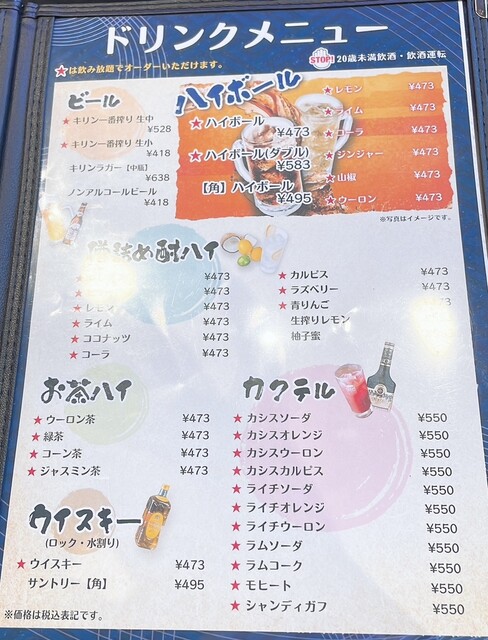 ドリンクメニュー
★は飲み放題でオーダーいただけます。
STOP! 20歳未満飲酒・飲酒運転
ビール
★キリン一番搾り 生中
¥528
★キリン一番搾り 生小
¥418
キリンラガー【中瓶】
¥638
ノンアルコールビール
¥418
ハイボール
★ハイボール
¥473
★ハイボール(ダブル)
¥583
【角】ハイボール
¥495
★レモン ¥473
★ライム ¥473
★コーラ ¥473
★ジンジャー ¥473
★山椒 ¥473
★ウーロン ¥473
※写真はイメージです。
酎ハイ
¥473
¥473
レモン ¥473
★ライム ¥473
★ココナッツ ¥473
★コーラ ¥473
★カルピス ¥473
★ラズベリー ¥473
★青りんご
生搾りレモン
柚子蜜
お茶ハイ
★ウーロン茶 ¥473
★緑茶 ¥473
★コーン茶 ¥473
★ジャスミン茶 ¥473
ウイスキー
(ロック・水割り)
★ウイスキー ¥473
サントリー【角】 ¥495
カクテル
★カシスソーダ ¥550
★カシスオレンジ ¥550
★カシスウーロン ¥550
★カシスカルピス ¥550
★ライチソーダ ¥550
★ライチオレンジ ¥550
★ライチウーロン ¥550
★ラムソーダ ¥550
★ラムコーク ¥550
★モヒート ¥550
★シャンディガフ ¥550
※価格は税込表記です。